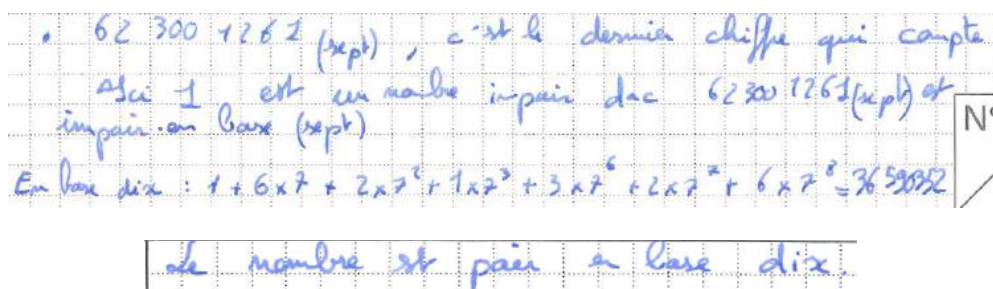 • 62 300 1261 (sept), c'est le dernier chiffre qui compte
Ici 1 est un nombre impair donc 623001261(sept) est
impair en base (sept)
N°
En base dix : 1 + 6 x 7 + 2 x 7² + 1 x 7³ + 3 x 7⁶ + 2 x 7⁷ + 6 x 7⁸ = 36590352
Le nombre est pair en base dix.